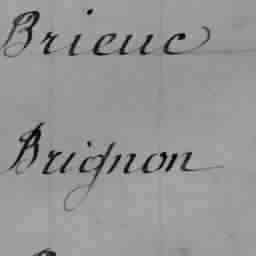 Brieuc
Brignon